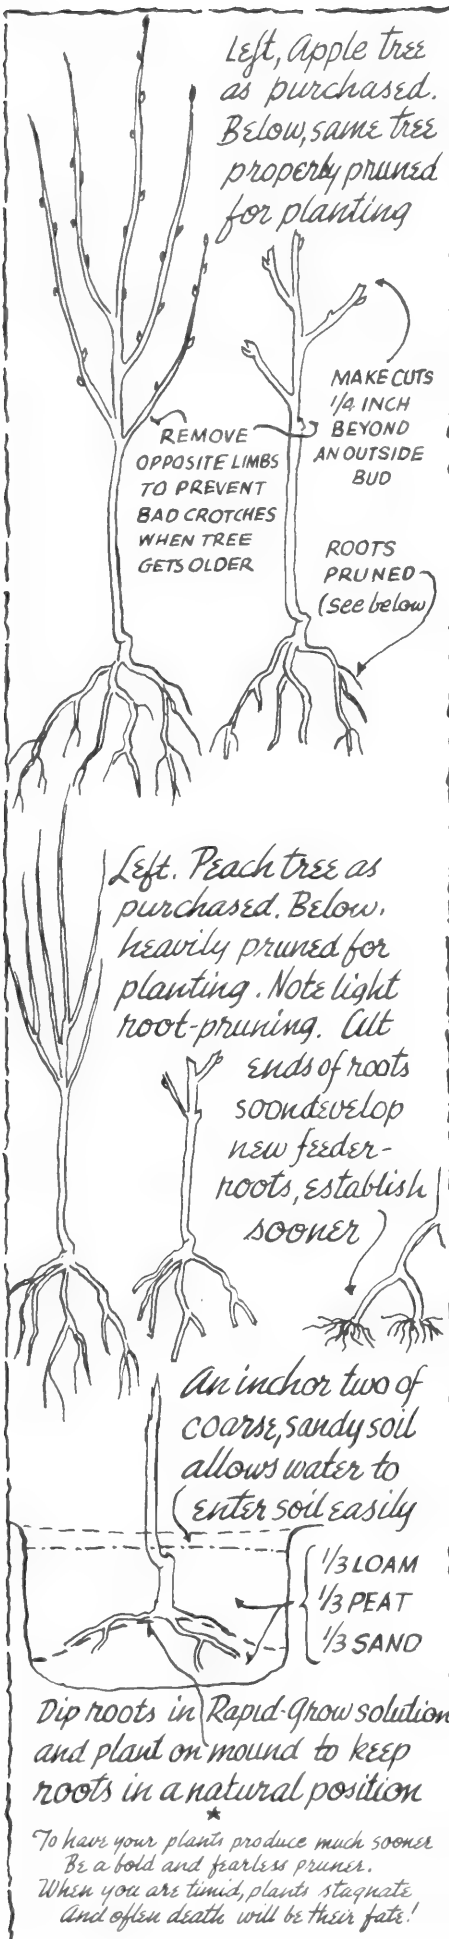 Left, Apple tree
as purchased.
Below, same tree
properly pruned
for planting
MAKE CUTS
1/4 INCH
BEYOND
AN OUTSIDE
BUD
REMOVE
OPPOSITE LIMBS
TO PREVENT
BAD CROTCHES
WHEN TREE
GETS OLDER
ROOTS
PRUNED
(see below)
Left. Peach tree as
purchased. Below.
heavily pruned for
planting. Note light
root-pruning. Cut
ends of roots
soon develop
new feeder-
roots, establish
sooner
An inch or two of
coarse, sandy soil
allows water to
enter soil easily
1/3 LOAM
1/3 PEAT
1/3 SAND
Dip roots in Rapid-Grow solution
and plant on mound to keep
roots in a natural position
*
To have your plants produce much sooner
Be a bold and fearless pruner.
When you are timid, plants stagnate
And often death will be their fate!